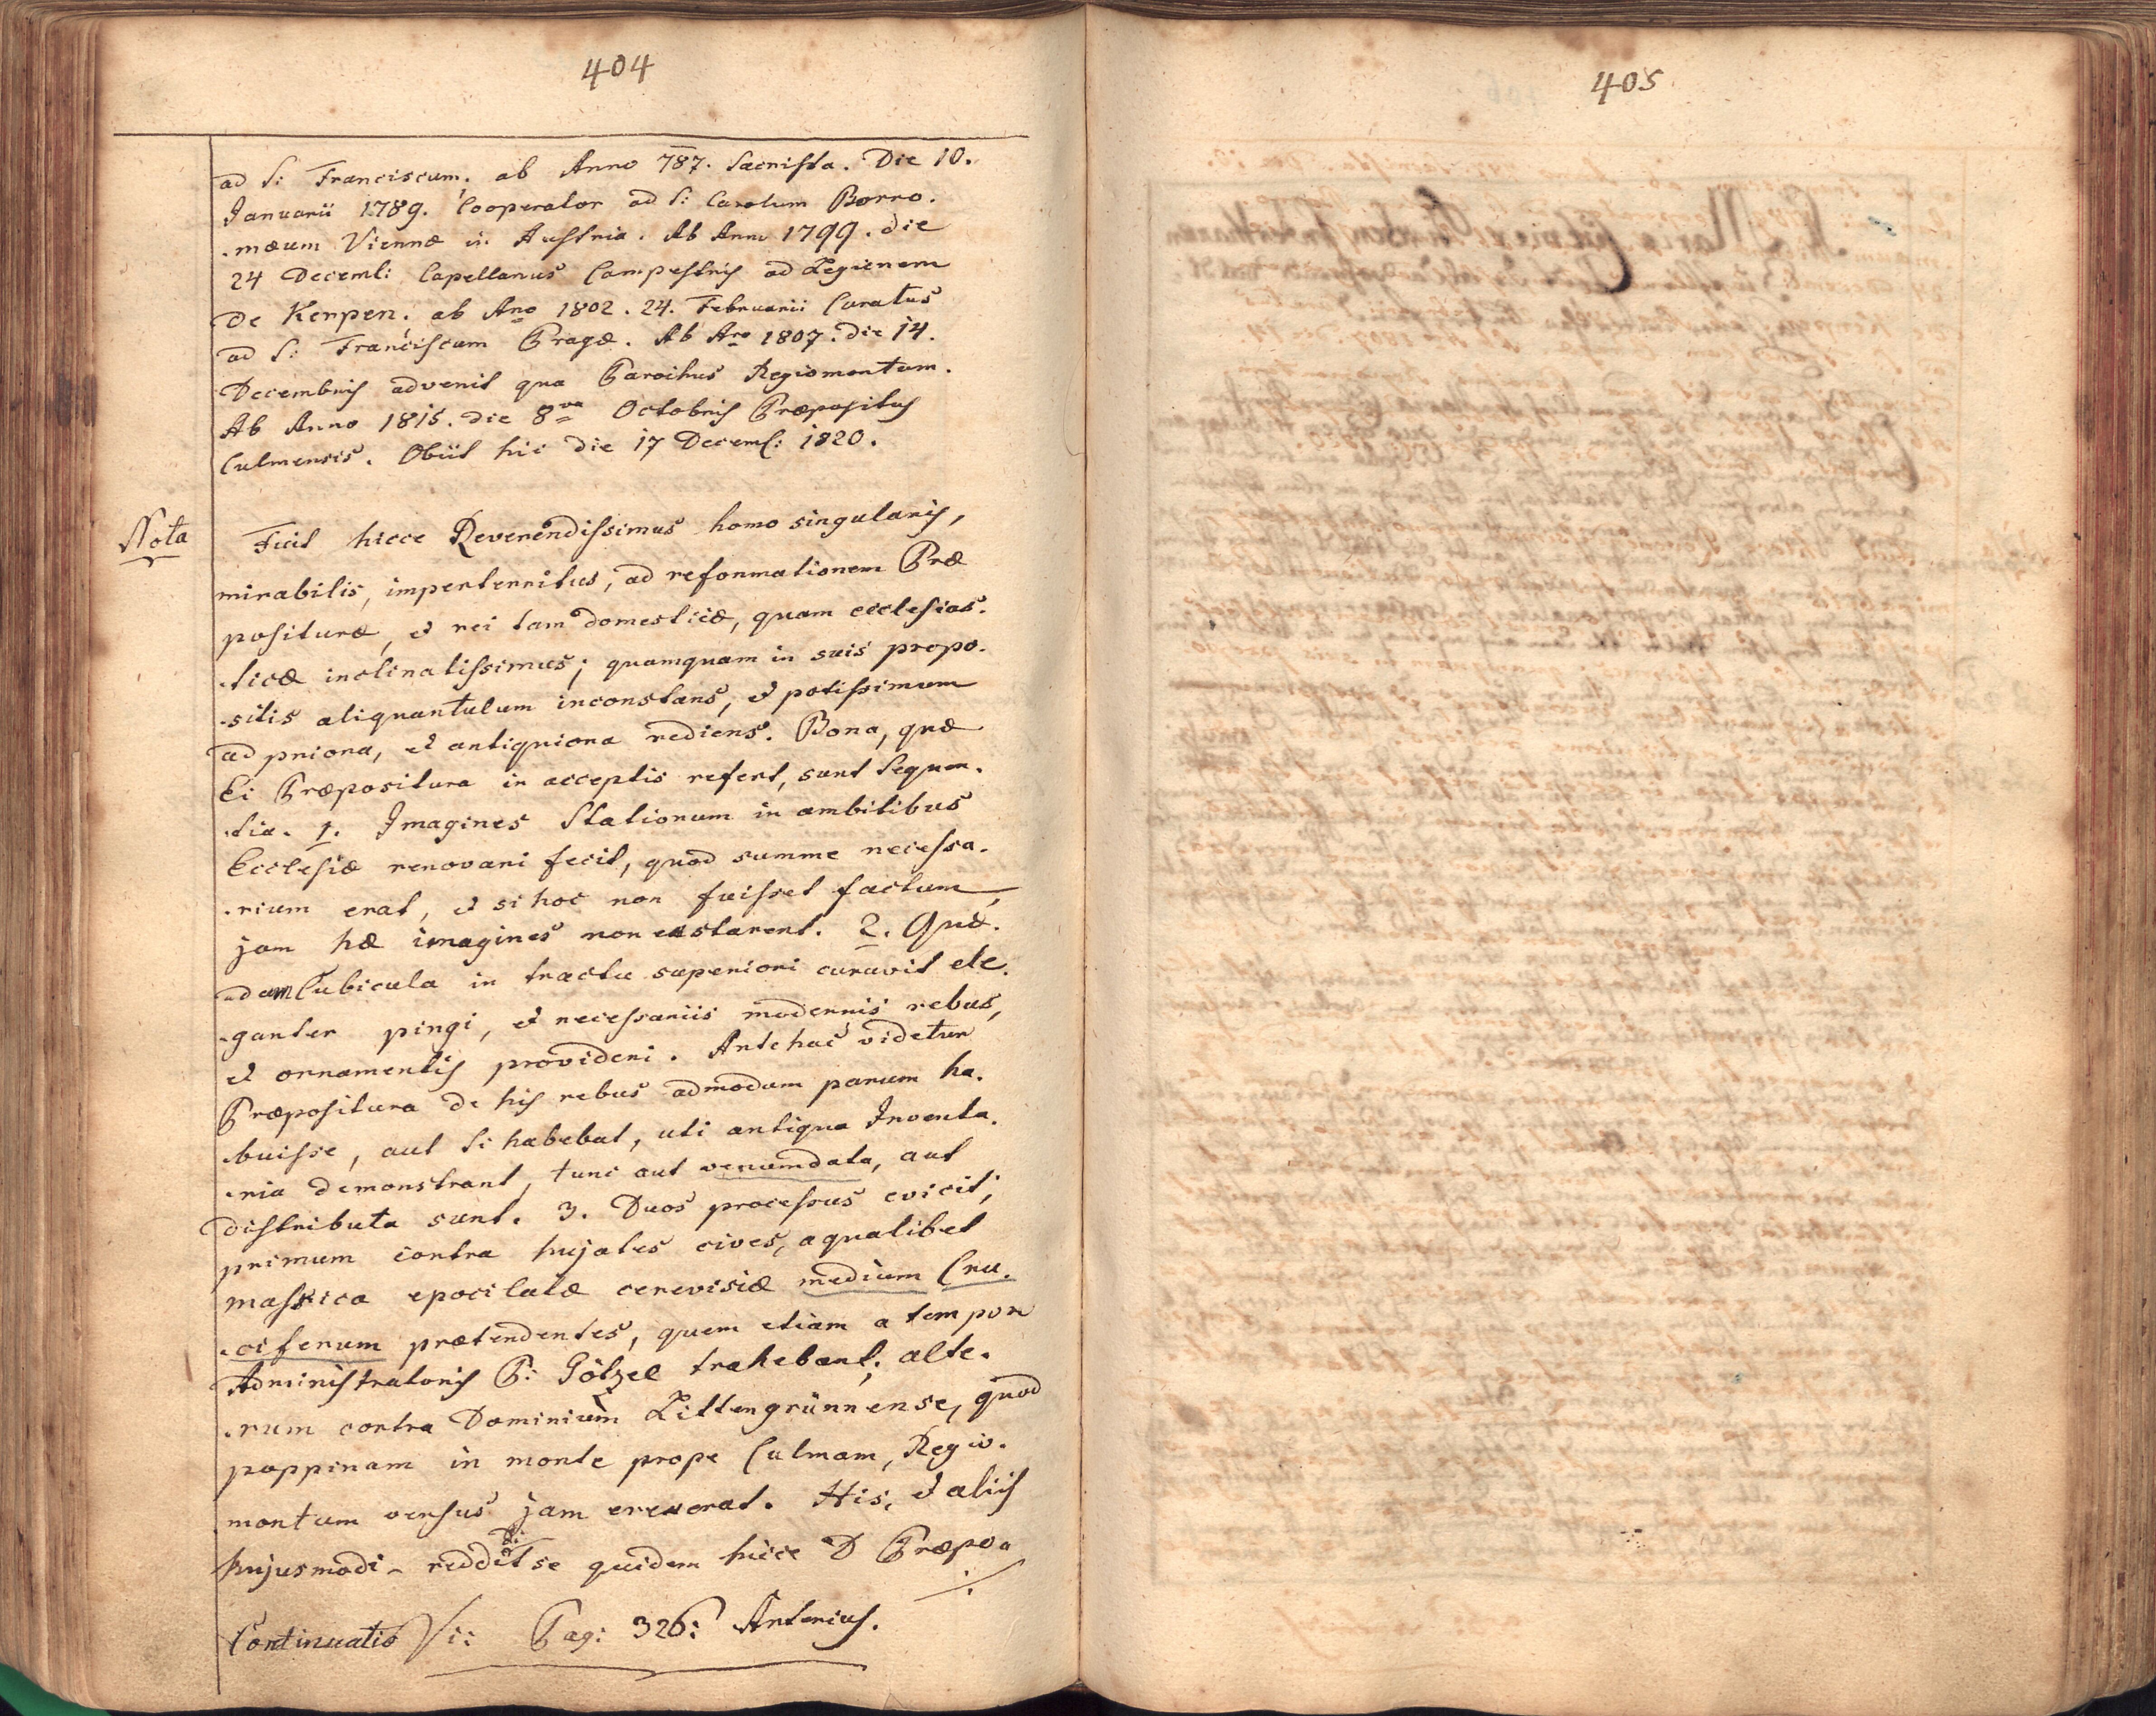 404
ad S: Franciscum. ab Anno 787. Sacrista. Die 10.
Januarii 1789. Cooperator ad S: Carolum Borro.
.mæum Viennæ in Austria. Ab Anno 1799. die
24 Decemb: Capellanus Campestris ad Legionem
De Kerpen. ab Ano 1802. 24. Februarii Curatus
ad S: Franciscum Pragæ. Ab Ano 1807. die 14.
Decembris advenit qua Parochus Regiomontum.
Ab Anno 1815. die 8va Octobris Præpositus
Culmensis. Obiit hic die 17 Decemb: 1820.
Nota
Fuit hicce Reverendissimus homo singularis,
mirabilis, imperterritus, ad reformationem Præ
posituræ, et rei tam domesticæ, quam ecclesias.
.ticæ inclinatissimus; quamquam in suis propo.
.sitis aliquantulum inconstans, et potissimum
ad priora, et antiquiora rediens. Bona, quæ
Ei Præpositura in acceptis refert, sunt sequen.
.tia. 1. Imagines Stationum in ambitibus
Ecclesiæ renovari fecit, quod summe necessa.
.rium erat, et si hoc non fuisset factum,
jam hæ imagines non exstarent. 2. Quæ.
.dam Cubicula in tractu superiori curavit ele.
.ganter pingi, et necessariis modernis rebus,
et ornamentis provideri. Antehac videtur
Præpositura de his rebus admodum parum ha.
.buisse, aut si habebat, uti antiqua Inventa.
.ria demonstrant, tunc aut venumdata, aut
distributa sunt. 3. Duos processus evicit;
primum contra hujates cives, a qualibet
massica epocilatæ cerevisiæ medium Cru.
.ciferum prætendentes, quem etiam a tempore
Administratoris P: Götzel trahebant; alte.
.rum contra Dominium Littengrünnense, quod
poppinam in monte prope Culmam, Regio.
montum versus jam erexerat. His, et aliis
hujusmodi reddidit se quidem hicce D Præpo.
./.
Continuatio V: Pag: 326: Antonius.
405